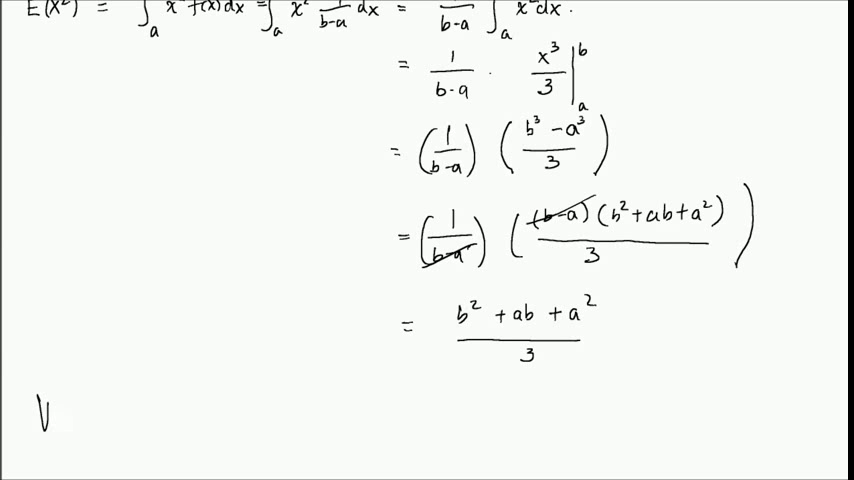 E(X²) = ∫ₐ x² f(x) dx = ∫ₐ x² 1/(b-a) dx = 1/(b-a) ∫ₐ x² dx.
= 1/(b-a) · x³/3 |ₐᵇ
= (1/(b-a)) ((b³-a³)/3)
= (1/(b-a)) ((b-a)(b²+ab+a²)/3)
= (b²+ab+a²)/3
V